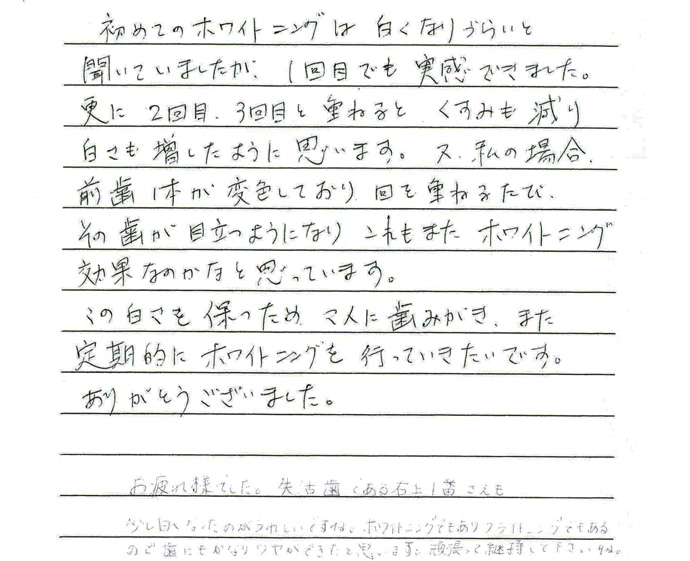 初めてのホワイトニングは 白くなりづらいと
聞いていましたが、1回目でも 実感できました。
更に 2回目、3回目と 重ねると くすみも 減り
白さも 増したように 思います。又、私の場合、
前歯 1本が 変色しており、回を 重ねるたび、
その 歯が 目立つようになり これもまた ホワイトニング
効果なのかなと思っています。
この白さを 保つため、マメに 歯みがき、また
定期的に ホワイトニングを 行っていきたいです。
ありがとうございました。
お疲れ様でした。失活歯である右上1番さえも
少し白くなったのがうれしいですね。ホワイトニングでもありブライトニングでもある
ので歯にもかなりツヤができたと思います。頑張って継持して下さいね。